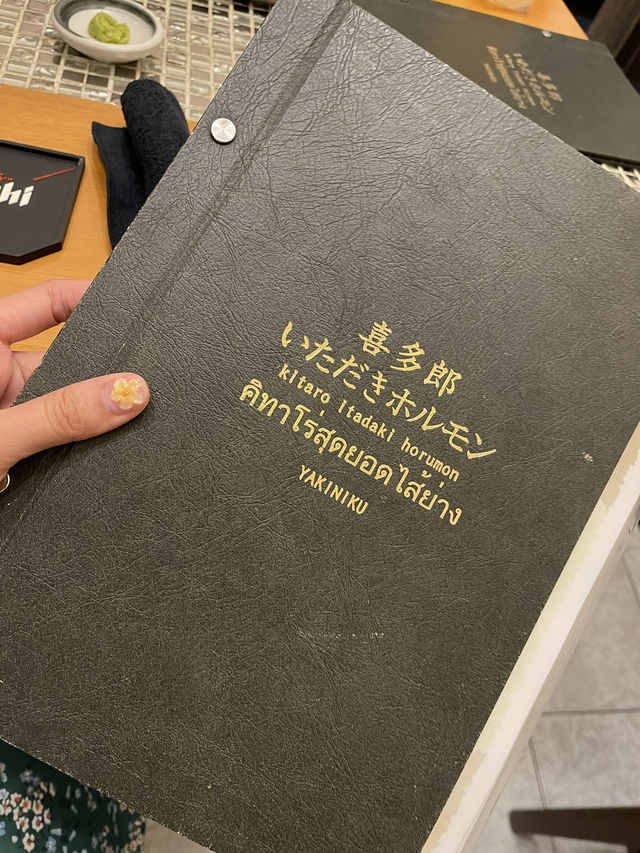 喜多郎
いただきホルモン
kitaro itadaki horumon
คิทาโร่สุดยอดไส้ย่าง
YAKINIKU
喜多郎
いただきホルモン